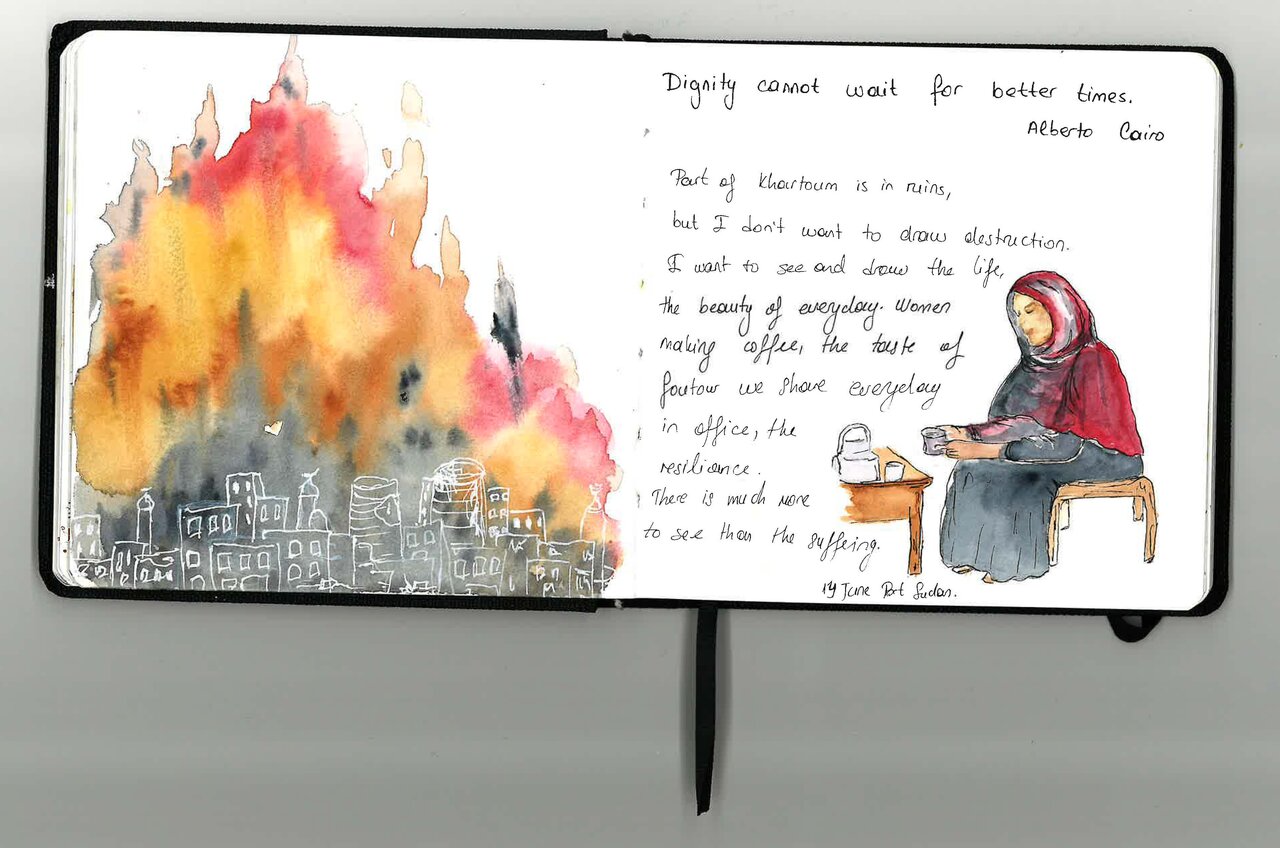 Dignity cannot wait for better times.
Alberto Cairo
Part of Khartoum is in ruins,
but I don't want to draw destruction.
I want to see and draw the life,
the beauty of everyday. Women
making coffee, the taste of
foutow we share everyday
in office, the
resilience.
There is much more
to see than the suffeing.
19 June Port Sudan.